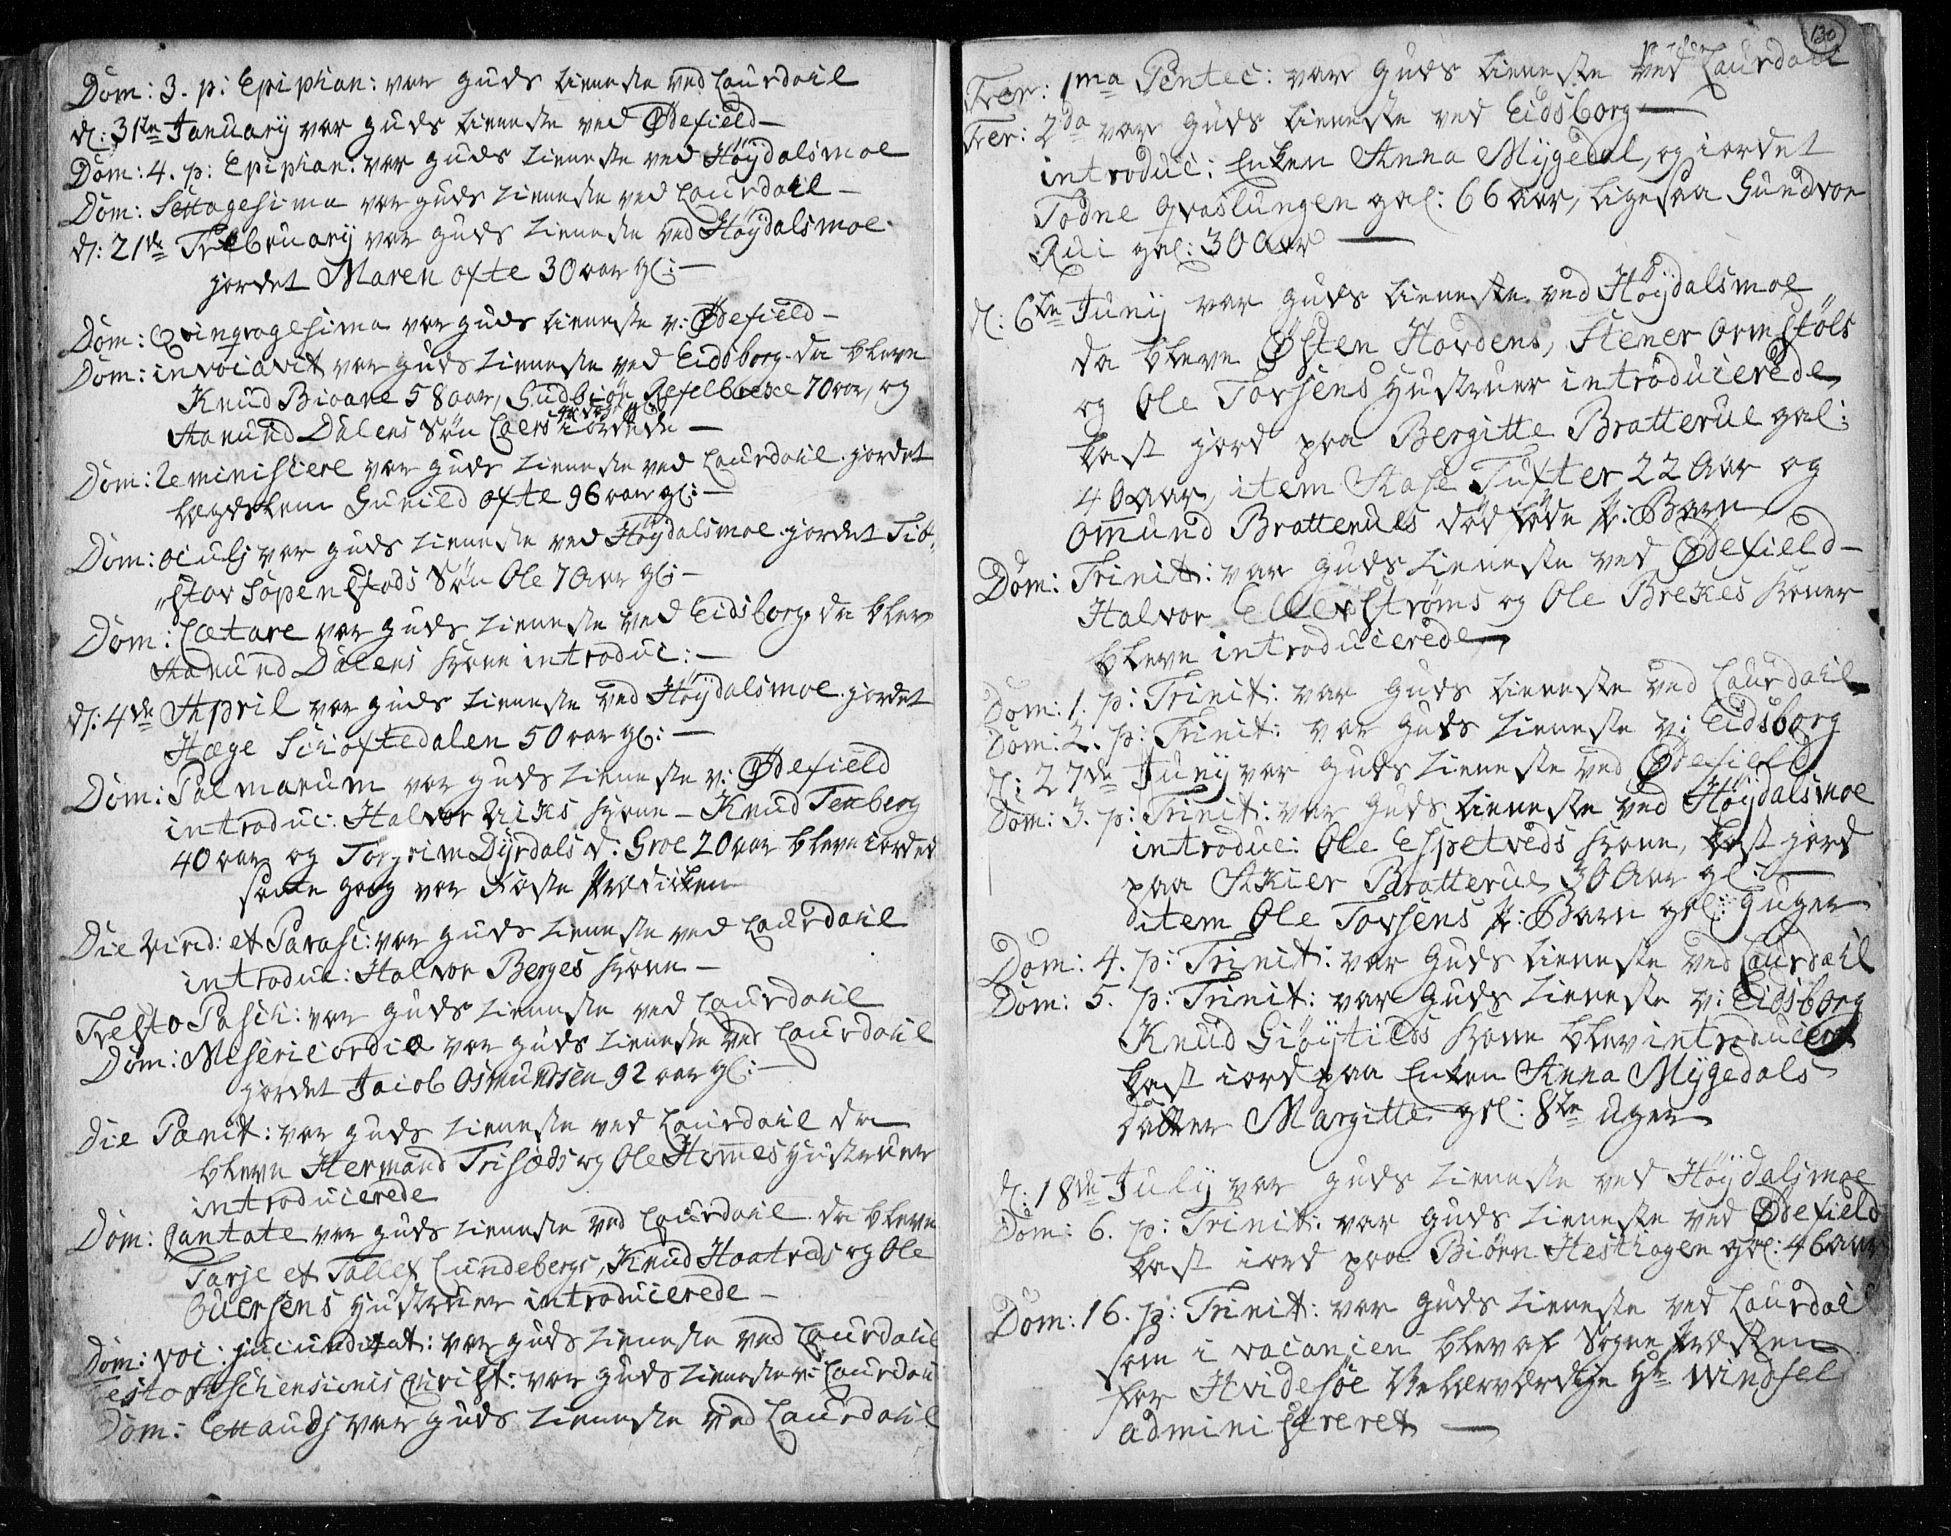 Dom: 3. p: Epiphan: var guds tieneste ved Laurdahl
d: 31te January var guds tieneste ved Ødefield —
Dom: 4. p: Epiphan: var guds tieneste ved Høydalsmoe
Dom: Sexagesima var guds tieneste ved Laurdahl —
d: 21de February var guds tieneste ved Høydalsmoe.
jordet Maren ofte 30 aar gl: —
Dom: Qvinqvagesima var guds tieneste v: Ødefield —
Dom: invocavit var guds tieneste ved Eidsborg. da bleve
Knud Bioane 58 aar, Gudbiør 70 aar, og
Aamund Dalens Søn Laers iordede —
Dom: Reminiscere var guds tieneste ved Laurdahl. jordet
lægdslem Gunild ofte 96 aar gl: —
Dom: oculj var guds tieneste ved Høydalsmoe. jordet
Søn Ole 7 Aar gl: —
Dom: Lætare var guds tieneste ved Eidsborg. da blev
Aamund Dalens Kone introduc: —
d: 4de April var guds tieneste ved Høydalsmoe. jordet
Hæge Schoftedalen 50 aar gl: —
Dom: Palmarum var guds tieneste v: Ødefield
introduc: Halvor Kone — Knud Texberg
40 aar og Torgrim Dyrdals d: Groe 20 aar bleve iorded
samme gang var Første Prædicken
Die Virid: et Parasc: var guds tieneste ved Laurdahl
introduc: Halvor Berges Kone —
Festo Pasch: var guds tieneste ved Laurdahl
Dom: Misericordiæ var guds tieneste ved Laurdahl
jordet Jacob Osmundsen 92 aar gl: —
Die Panit: var guds tieneste ved Laurdahl da
bleve Hermand Trisæds og Ole Homes Hustruer
introducerede
Dom: Cantate var guds tieneste ved Laurdahl. da bleve
Tarje et Tallef Lundebergs, Knud Haatveds og Ole
Hustruer introducerede —
Dom: voc: jucunditat: var guds tieneste ved Laurdahl
Festo Aschensionis Christ: var guds tieneste v: Laurdahl
Dom: Exaudj var guds tieneste ved Laurdahl
130
Fer: 1ma Pentec: var guds tieneste ved Laurdahl
Fer: 2da var guds tieneste ved Eidsborg —
introduc: Enken Anna Mygedal, og iordet
Todne Graslungen gal: 66 aar, ligesaa Gundvor
Rui gal: 30 Aar —
d: 6te Junij var guds tieneste ved Høydalsmoe
da bleve Østen Hovdens, Stener Ormstøls
og Ole Torsens Hustruer introducerede,
kast jord paa Bergitte Bratterue gal:
40 aar, item Aase Tufter 22 Aar og
Omund Bratteruds død føde P: Barn
Dom: Trinit: var guds tieneste ved Ødefield —
Halvor Ellefstrøms og Ole Brekes Koner
bleve introducerede,
Dom: 1. p: Trinit: var guds tieneste ved Laurdahl
Dom: 2. p: Trinit: var guds tieneste v: Eidsborg
d: 27de Junij var guds tieneste ved Ødefield
Dom: 3. p: Trinit: var guds tieneste ved Høydalsmoe
introduc: Ole Espetveds Kone, kast jord
paa Bratterue 30 Aar gl: —
item Ole Torsens P: Barn gal: 9 uger
Dom: 4. p: Trinit: var guds tieneste ved Laurdahl
Dom: 5. p: Trinit: var guds tieneste v: Eidsborg
Knud Giøytilds Kone blev introducert
kast iord paa Enken Anna Mygedals
datter Margitte gal: 8te uger
d: 18de July var guds tieneste ved Høydalsmoe
Dom: 6. p: Trinit: var guds tieneste ved Ødefield
kast iord paa Biørn Hesthagen gal: 46 aar
Dom: 16. p: Trinit: var guds tieneste ved Laurdal
som i vacancen blev af Sogne Præsten
for Hvidesøe Velærværdige Hr Windfel
administreret —